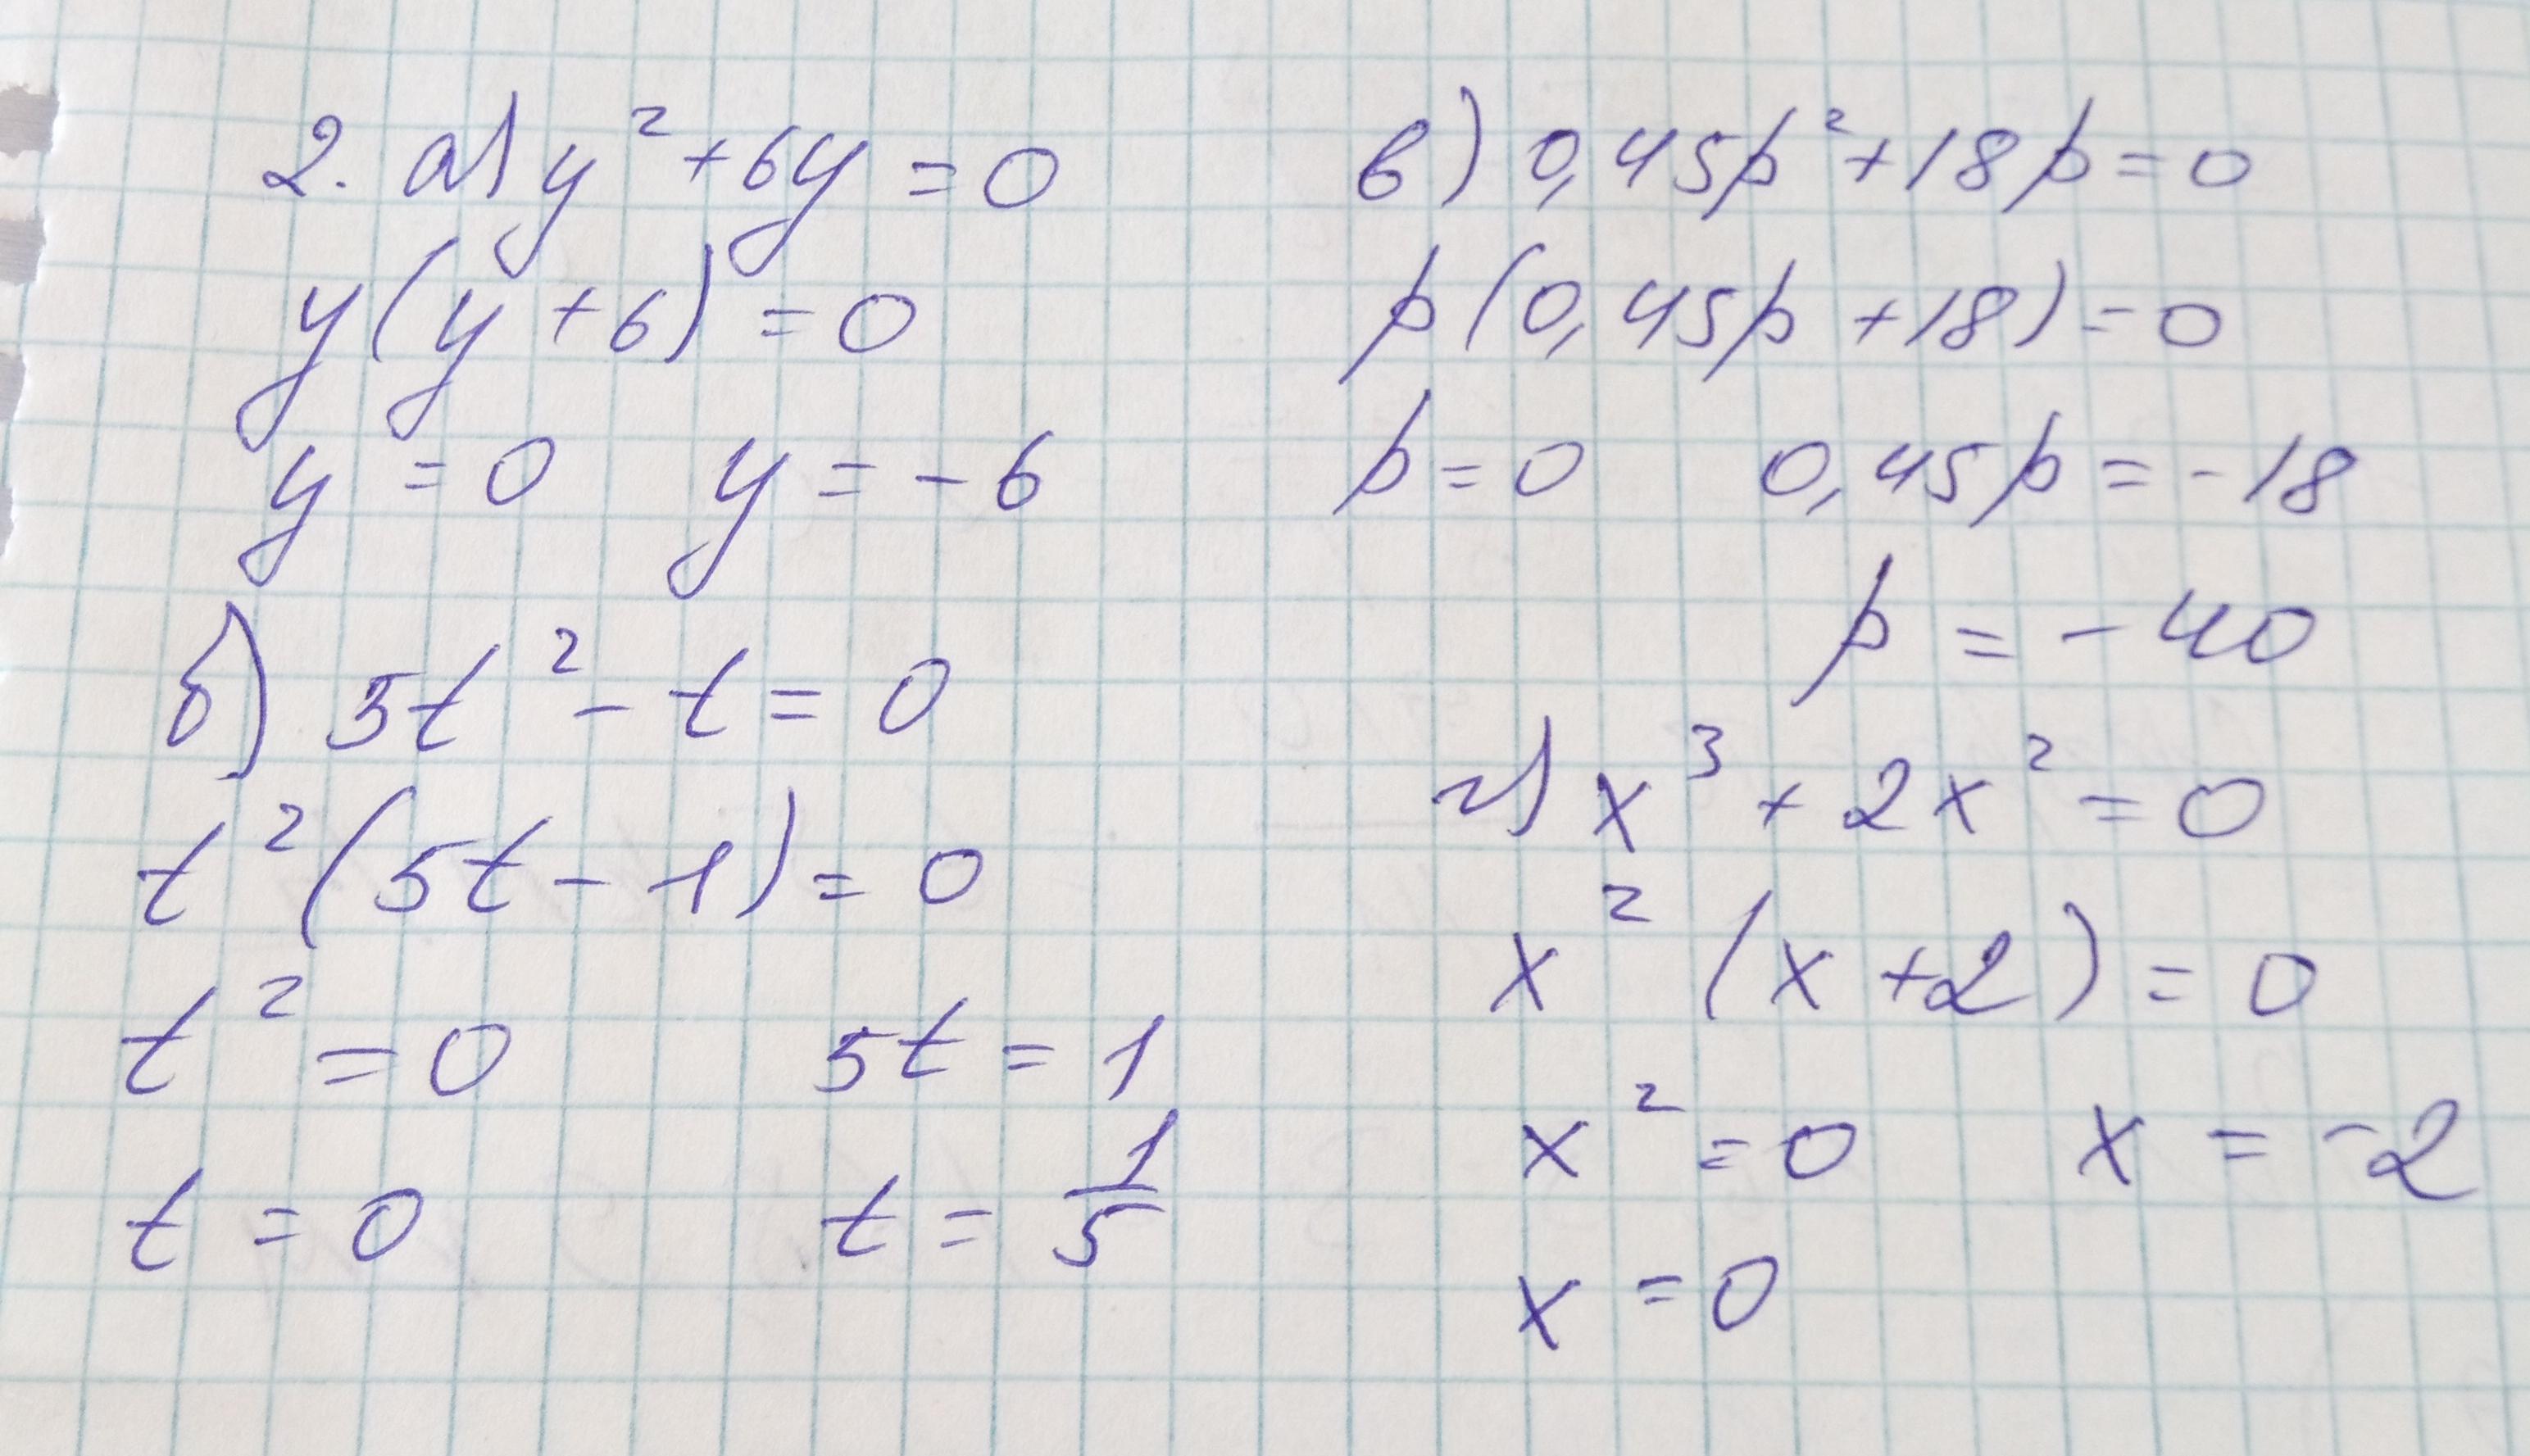 2. а) y² + 6y = 0
y(y + 6) = 0
y = 0 y = - 6
б) 5t² - t = 0
t²(5t - 1) = 0
t² = 0 5t = 1
t = 0 t = 1/5
в) 0,45p² + 18p = 0
p(0,45p + 18) = 0
p = 0 0,45p = -18
p = - 40
г) x³ + 2x² = 0
x² (x + 2) = 0
x² = 0 x = -2
x = 0